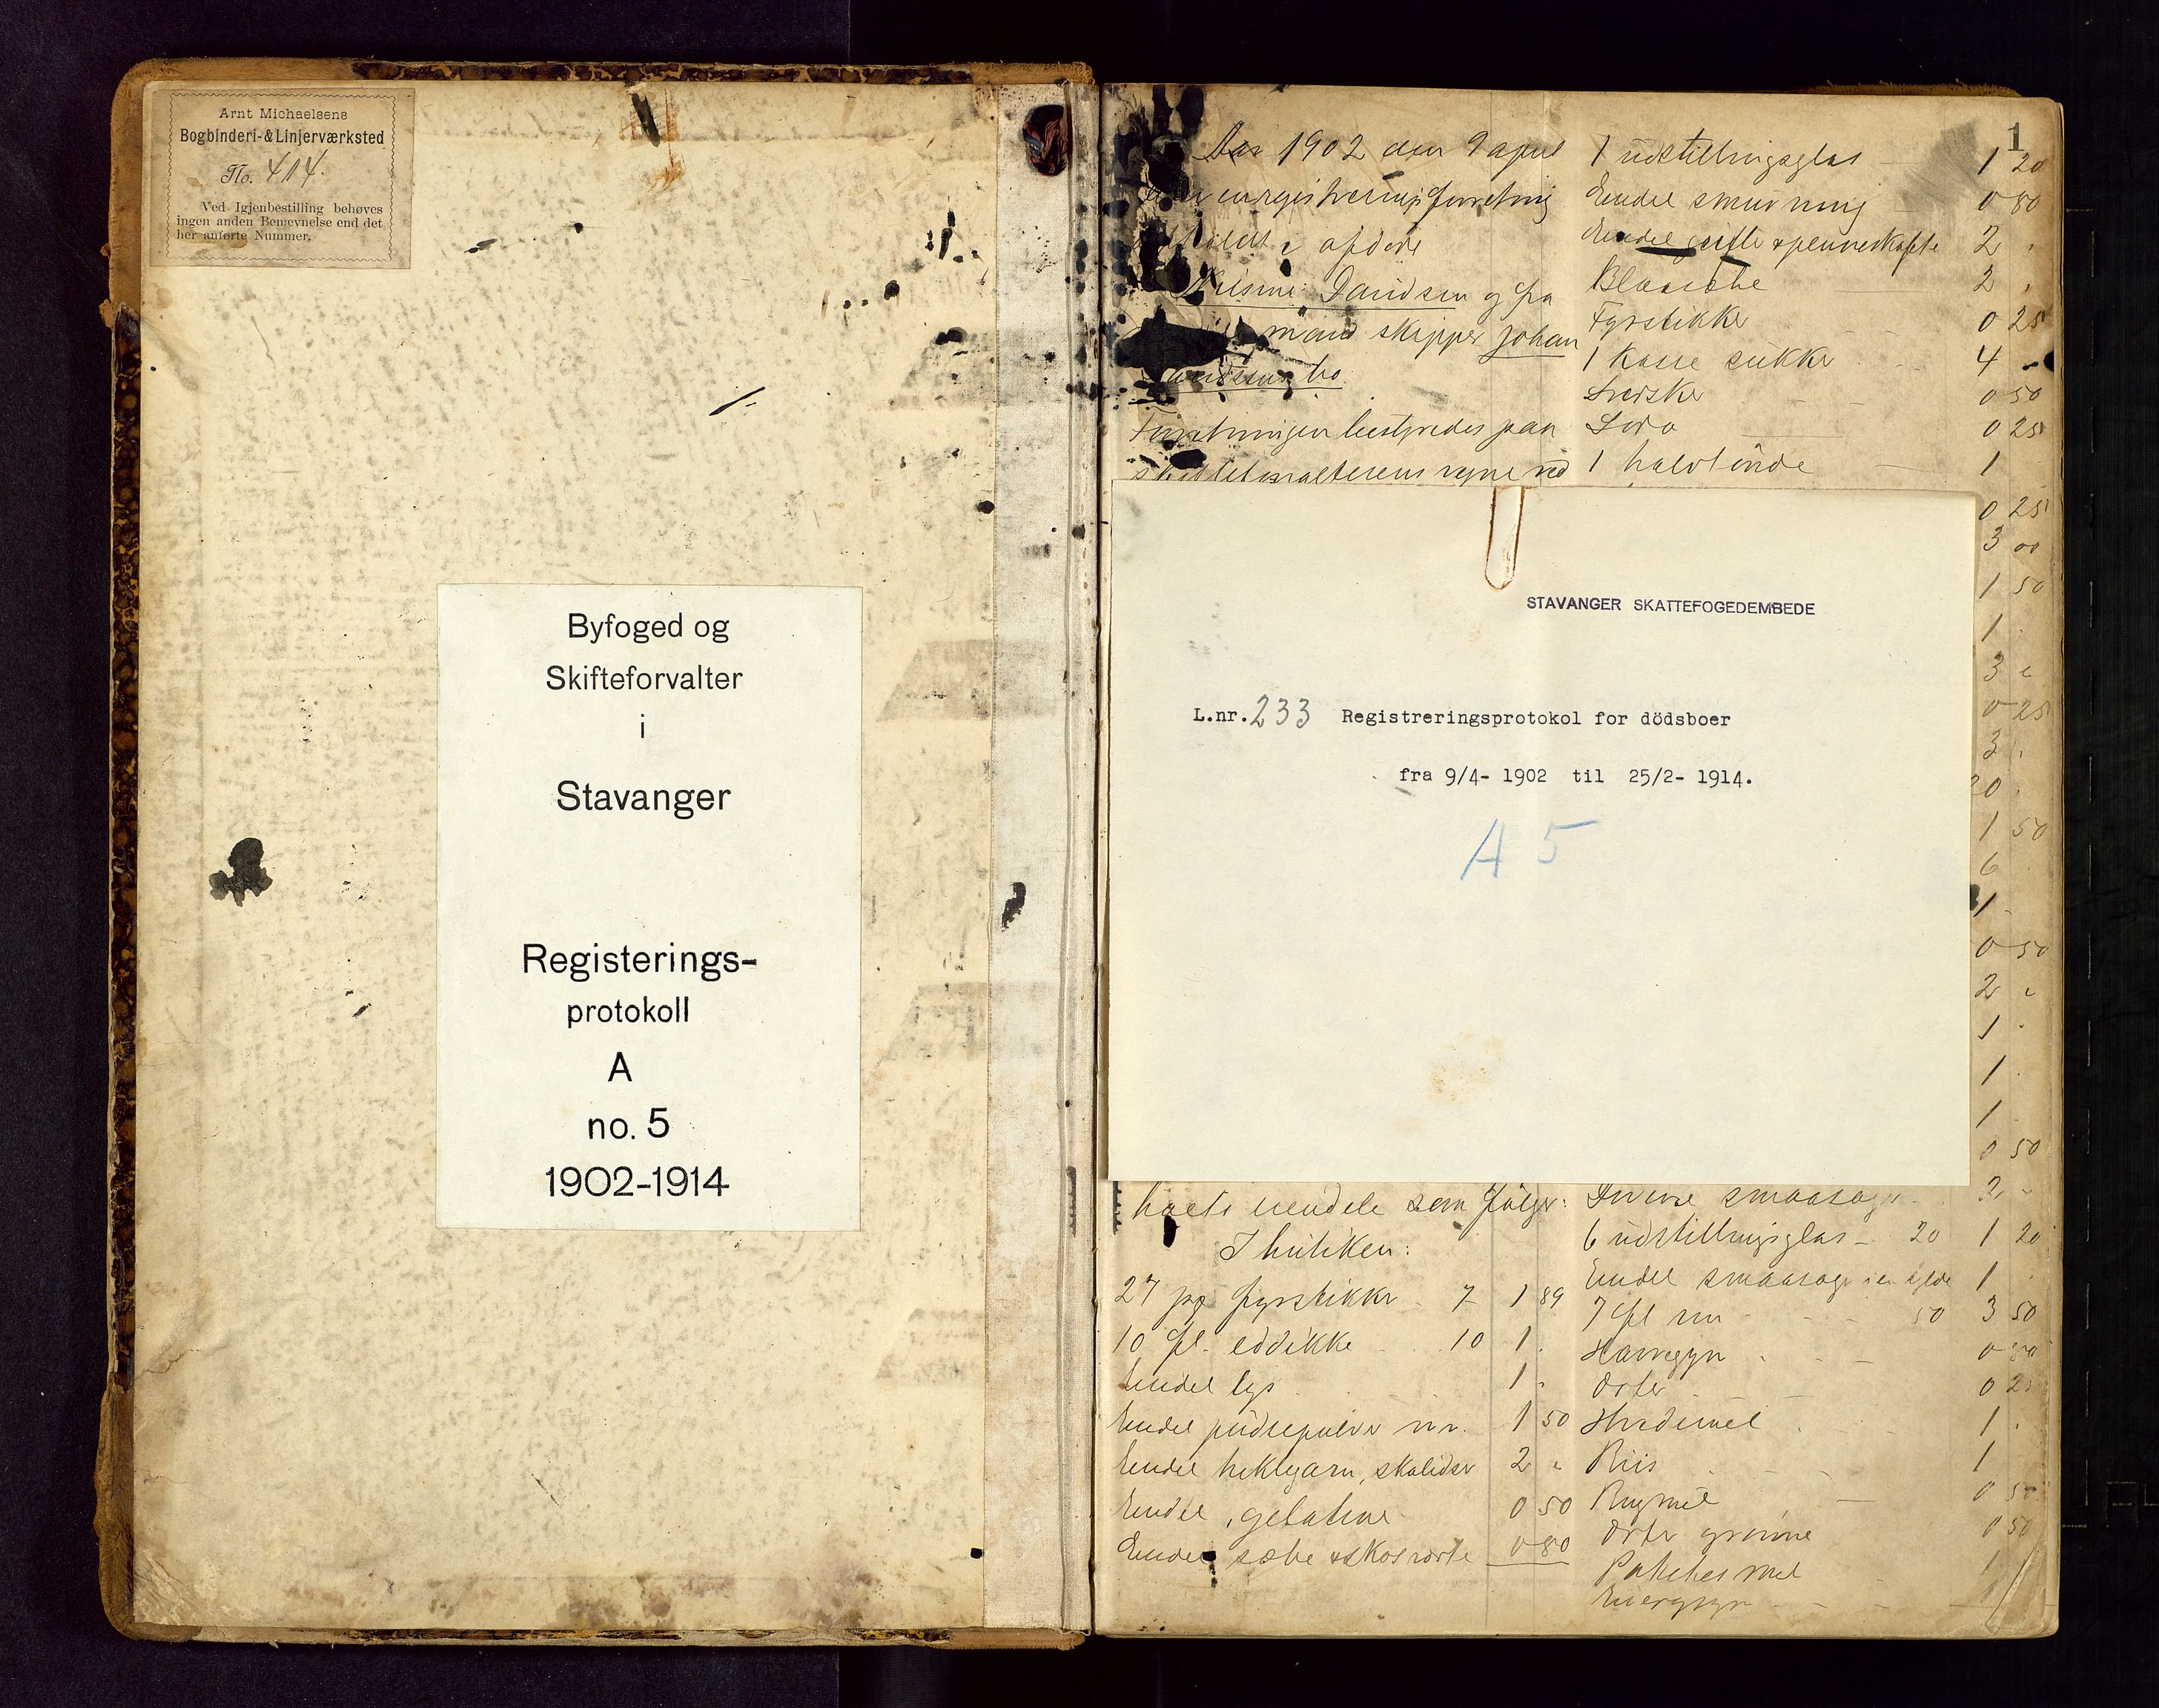 Arnt Michaelsens
Bogbinderi-&Linjerværksted
No. 414.
Ved Igjenbestilling behøves
ingen anden Benævnelse end det
her anførte Nummer.
Byfoged og
Skifteforvalter
i
Stavanger
Registerings-
protokoll
A
no. 5
1902-1914
1
Aar 1902 den 9 april
afdøde
Davidsen og fra
mand skipper Johan
bo
Forretningen bestyredes paa
STAVANGER SKATTEFOGEDEMBEDE
L.nr. 233 Registreringsprotokol for dödsboer
fra 9/4- 1902 til 25/2- 1914.
A 5
boets eiendele som følger:
I butiken:
27 pg fyrstikker 7 1 89
10 fl. eddikke 10 1 .
Endel lys 1 .
Endel pudsepulver m.m. 1 50
Endel heklegarn, skolidser 2 "
Endel gelatine 0 50
Endel sæbe & skosværte 0 80
1 udstillingsglas 1 20
Endel smurning 0 80
Endel grifle & penneskafte 2 "
2 "
Fyrstikker 0 25
1 kasse sukker 4 "
Svedsker 0 50
Soda 0 25
1 halvtønde 1
0 25
3 00
1 50
1 .
3 "
0 25
3 .
20 .
1 50
6
1 .
0 50
2 "
1 .
1 .
1 .
0 50
Diverse smaasager 2 "
6 udstillingsglas 20 1 20
Endel smaasager i en hylde 1 .
7 fl. 50 3 50
Havregryn
Erter 0 25
Hvedemel 1 .
Riis 1
Rugmel 0 50
Erter grønne 0 50